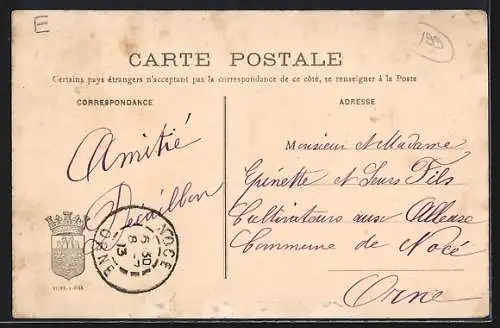 E
199
CARTE POSTALE
Certains pays étrangers n'acceptant pas la correspondance de ce côté, se renseigner à la Poste
CORRESPONDANCE
ADRESSE
Amitié
Monsieur et Madame
Epinette et Leurs Fils
Cultivateurs aux
Commune de Nocé
Orne
NOCÉ
ORNE